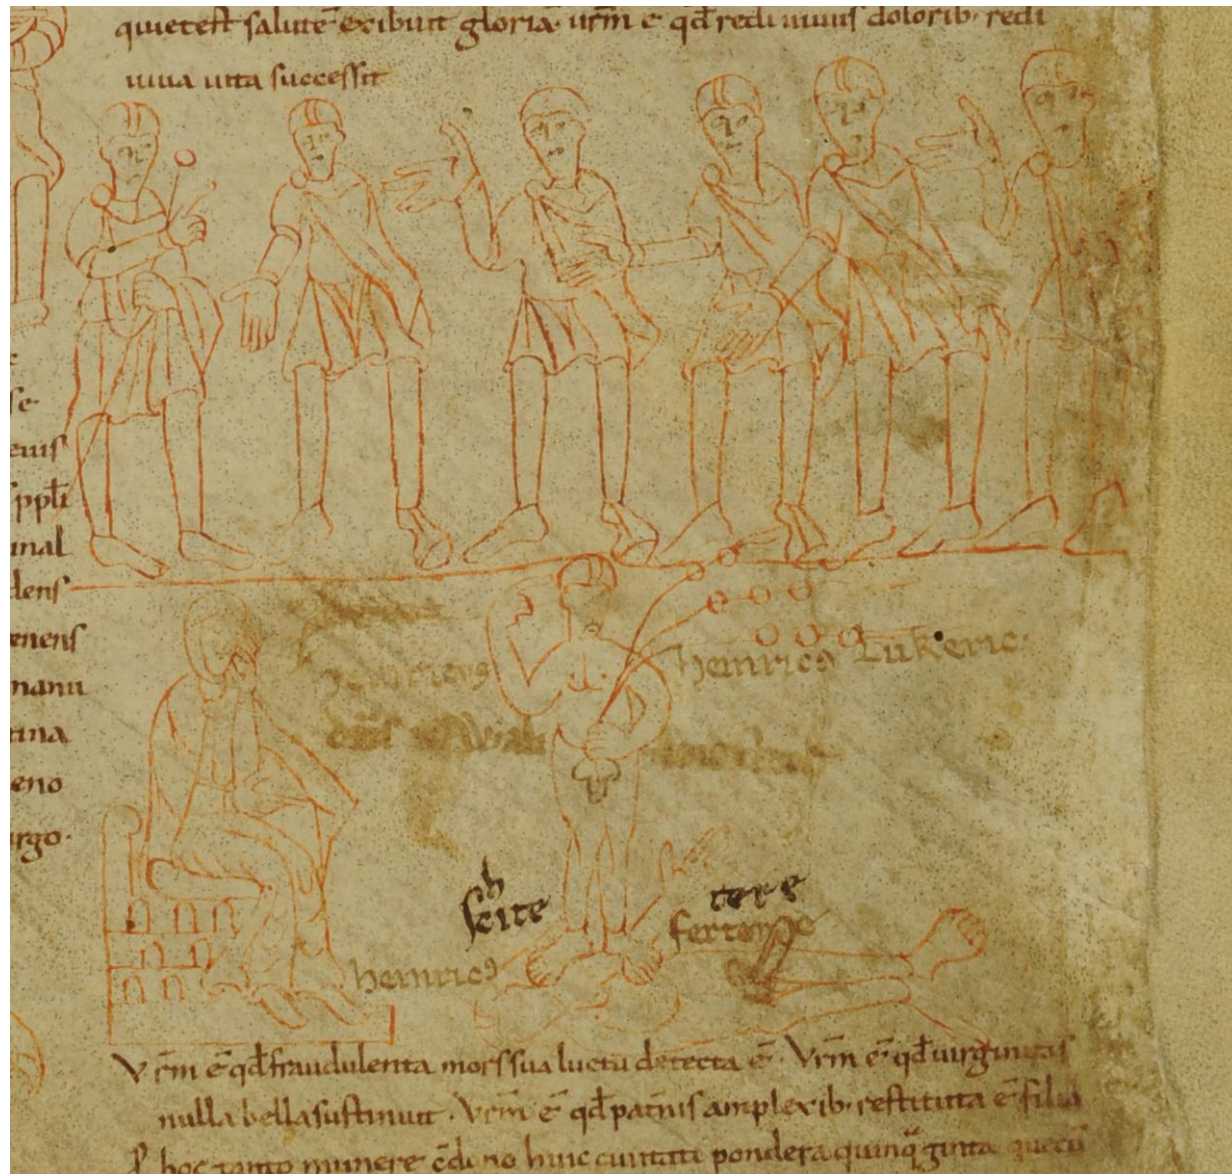 quietest salutē exibuit gloriā. urm̄ ē qđ rediuiuis dolorib; redi
uiua uita successit
se
euis
ppłi
inal
dens
enens
manu
tina
eno
irgo.
heinricꝰ Lukeric.
h
scite
tere
heinricꝰ
Vrm̄ ē qđ fraudulenta mors sua luctu detecta ē. Vrm̄ ē qđ uirginitas
nulla bella sustinuit. Vrm̄ ē qđ pat̄nis amplexib; restituta ē filia
hoc tanto munere c̄dono huic ciuitati pondera quinq̄ginta que cū